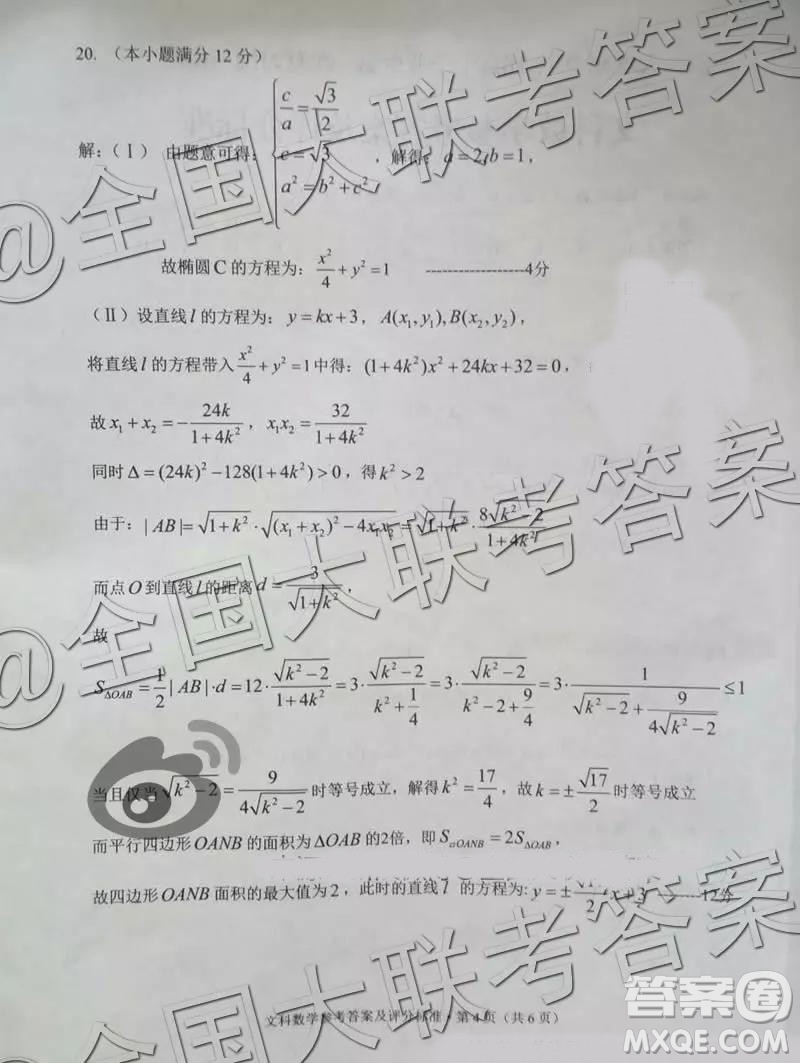 20. （本小题满分 12 分）
解:（Ⅰ） 由题意可得: { c/a = √3/2
c = √3
a² = b² + c² , 解得: a = 2, b = 1,
故椭圆 C 的方程为: x²/4 + y² = 1 ------------------4分
（Ⅱ）设直线 l 的方程为: y = kx + 3, A(x₁, y₁), B(x₂, y₂),
将直线 l 的方程带入 x²/4 + y² = 1 中得: (1 + 4k²)x² + 24kx + 32 = 0,
故 x₁ + x₂ = −24k/(1 + 4k²), x₁x₂ = 32/(1 + 4k²)
同时 Δ = (24k)² − 128(1 + 4k²) > 0, 得 k² > 2
由于: | AB | = √(1 + k²) · √((x₁ + x₂)² − 4x₁x₂) = √(1 + k²) · 8√(k² − 2)/(1 + 4k²)
而点 O 到直线 l 的距离 d = 3/√(1 + k²),
故
S△OAB = 1/2 | AB | · d = 12 · √(k² − 2)/(1 + 4k²) = 3 · √(k² − 2)/(k² + 1/4) = 3 · √(k² − 2)/(k² − 2 + 9/4) = 3 · 1/(√(k² − 2) + 9/(4√(k² − 2))) ≤ 1
当且仅当 √(k² − 2) = 9/(4√(k² − 2)) 时等号成立, 解得 k² = 17/4, 故 k = ±√17/2 时等号成立
而平行四边形 OANB 的面积为 ΔOAB 的2倍, 即 S▱OANB = 2S△OAB,
故四边形 OANB 面积的最大值为 2, 此时的直线 l 的方程为: y = ± /2 x + 3 --------12分
文科数学参考答案及评分标准 · 第 4 页（共 6 页）
@全国大联考答案
@全国大联考答案
答案圈
MXQE.COM